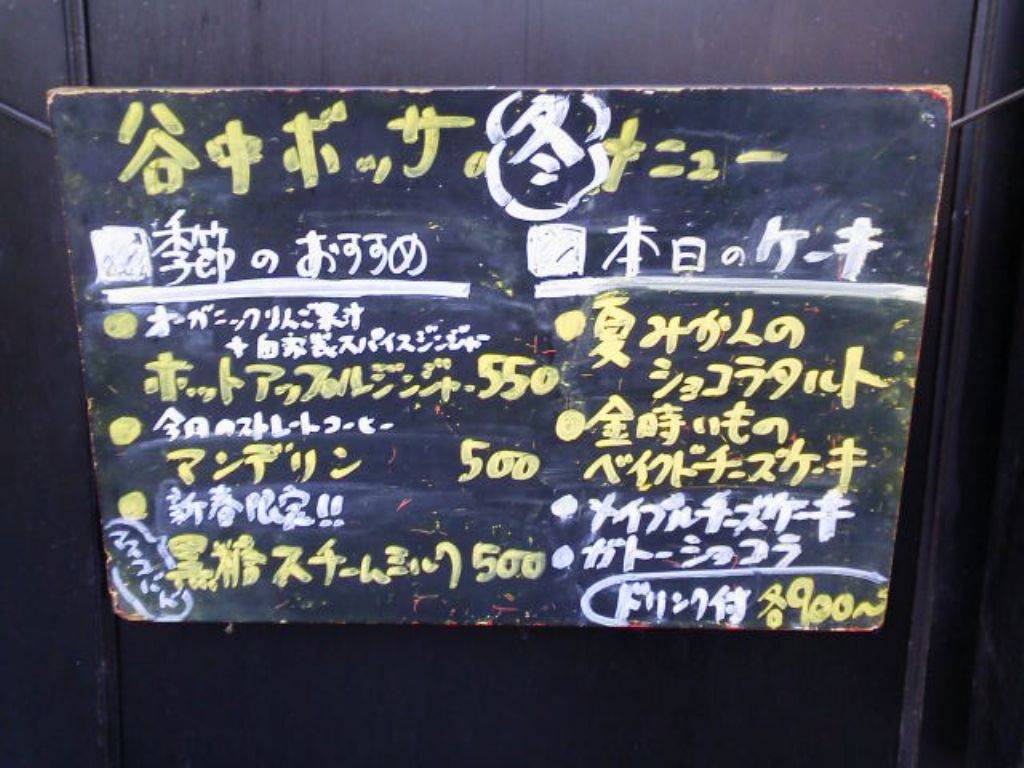 谷中ボッサの冬メニュー
季節のおすすめ
オーガニックりんご果汁
+自家製スパイスジンジャー
ホットアップルジンジャー 550
今日のストレートコーヒー
マンデリン 500
新春限定!!
黒糖スチームミルク 500
本日のケーキ
夏みかんの
ショコラタルト
金時いもの
ベイクドチーズケーキ
メイプルチーズケーキ
ガトーショコラ
ドリンク付 各900〜